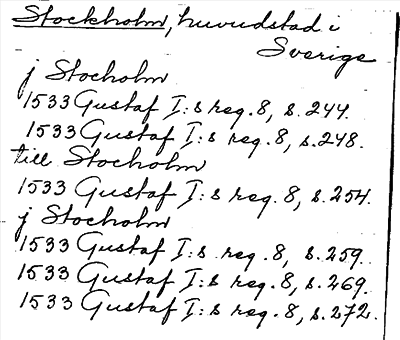 Stockholm, huvudstad i
Sverige
j Stocholm
1533 Gustaf I:s reg. 8, s. 244.
1533 Gustaf I:s reg. 8, s. 248.
till Stocholm
1533 Gustaf I:s reg. 8, s. 254.
j Stocholm
1533 Gustaf I:s reg. 8, s. 259.
1533 Gustaf I:s reg. 8, s. 269.
1533 Gustaf I:s reg. 8, s. 272.